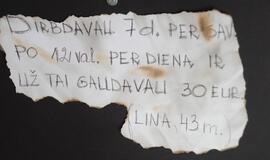 DIRBDAVAU 7d. PER SAV.
PO 12 val. PER DIENĄ IR
UŽ TAI GAUDAVAU 30 EUR.
(LINA, 43 m.)